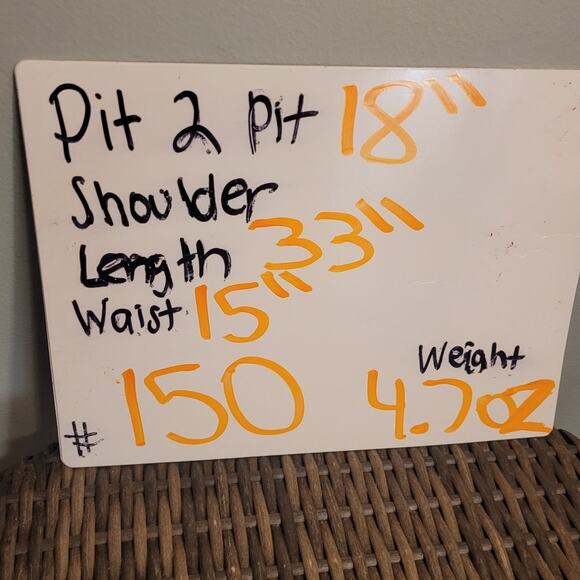 Pit 2 pit 18"
Shoulder
Length 33"
Waist 15"
Weight
# 150 4.7oz